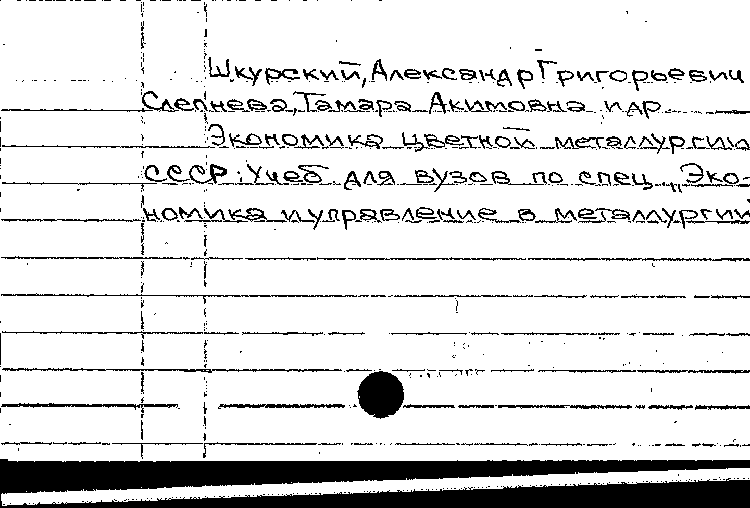 Шкурский, Александр Григорьевич
Слепнева, Тамара Акимовна и др.
Экономика цветной металлургии
СССР: Учеб для вузов по спец „Эко-
номика и управление в металлургии